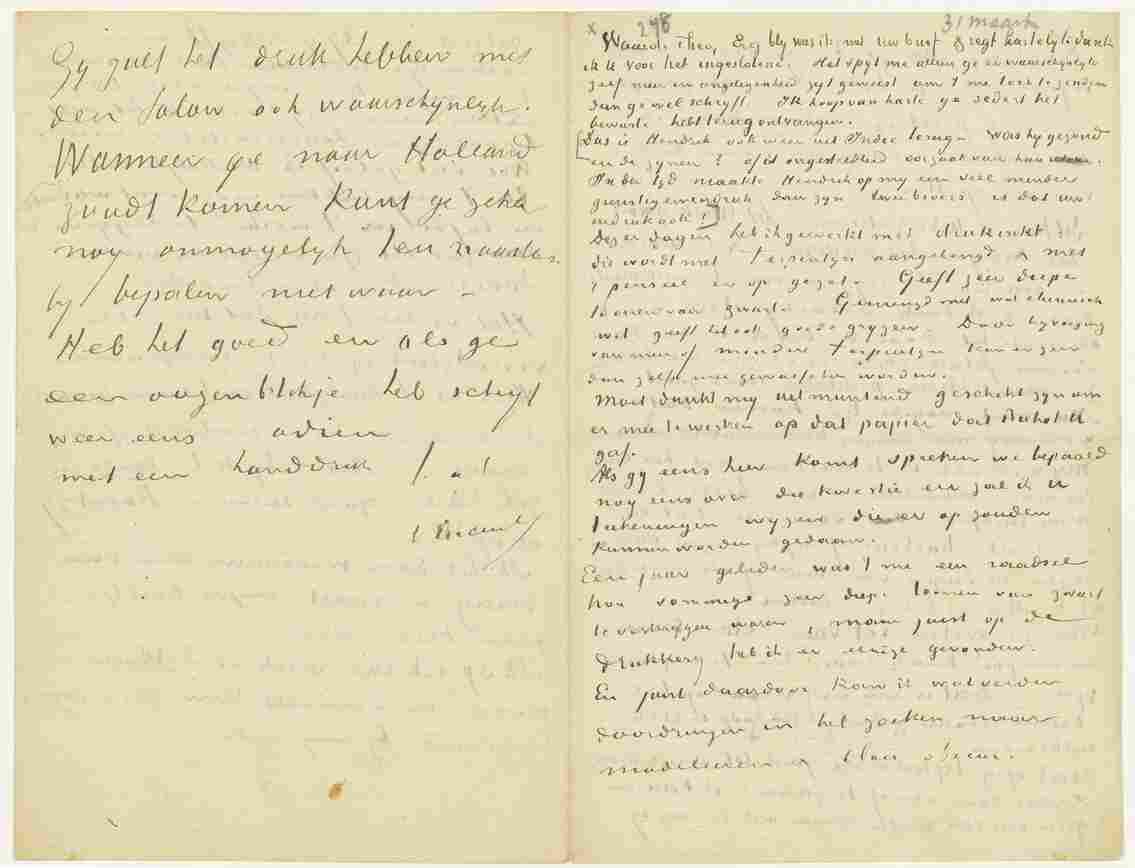 Gij zult het druk hebben met
den Salon ook waarschijnlijk.
Wanneer ge naar Holland
zoudt komen kunt ge zeker
nog onmogelijk ten naasten
bij bepalen niet waar –
Heb het goed en als ge
een oogenblikje heb schrijf
weer eens adieu
met een handdruk t. à t.
Vincent
x 248 31 maart
Waarde Theo, Erg blij was ik met uw brief & zegt hartelijk dank
ik U voor het ingeslotene. Het spijt me alleen ge er waarschijnlijk
zelf meer in ongelegenheid zijt geweest om 't me toe te zenden
dan ge wel schrijft. Ik hoop van harte ge sedert het
bewuste hebt terug ontvangen.
Dus is Hendrik ook weer uit Indie terug – Was hij gezond
en de zijnen? of is ongesteldheid oorzaak van hun
In der tijd maakte Hendrik op mij een veel minder
gunstigen indruk dan zijn twee broers is dat uw
indruk ook?
Dezer dagen heb ik gewerkt met drukinkt
die wordt met terpentijn aangelengd & met
't penseel er op gezet. Geeft zeer diepe
toonen van zwart. Gemengd met wat chineesch
wit geeft het ook goede grijzen. Door bijvoeging
van meer of minder terpentijn kan er zeer
dun zelfs mee gewasschen worden.
Moet dunkt mij uitmuntend geschikt zijn om
er mee te werken op dat papier dat Buhot U
gaf.
Als gij eens hier komt spreken we bepaald
nog eens over die kwestie en zal ik U
teekeningen wijzen die er op zouden
kunnen worden gedaan.
Een jaar geleden was 't me een raadsel
hoe sommige zeer diepe toonen van zwart
te verkrijgen waren, maar juist op de
drukkerij heb ik er eenige gevonden.
En juist daardoor kan ik wat verder
doordringen in het zoeken naar
modeleeren & clair obscur.